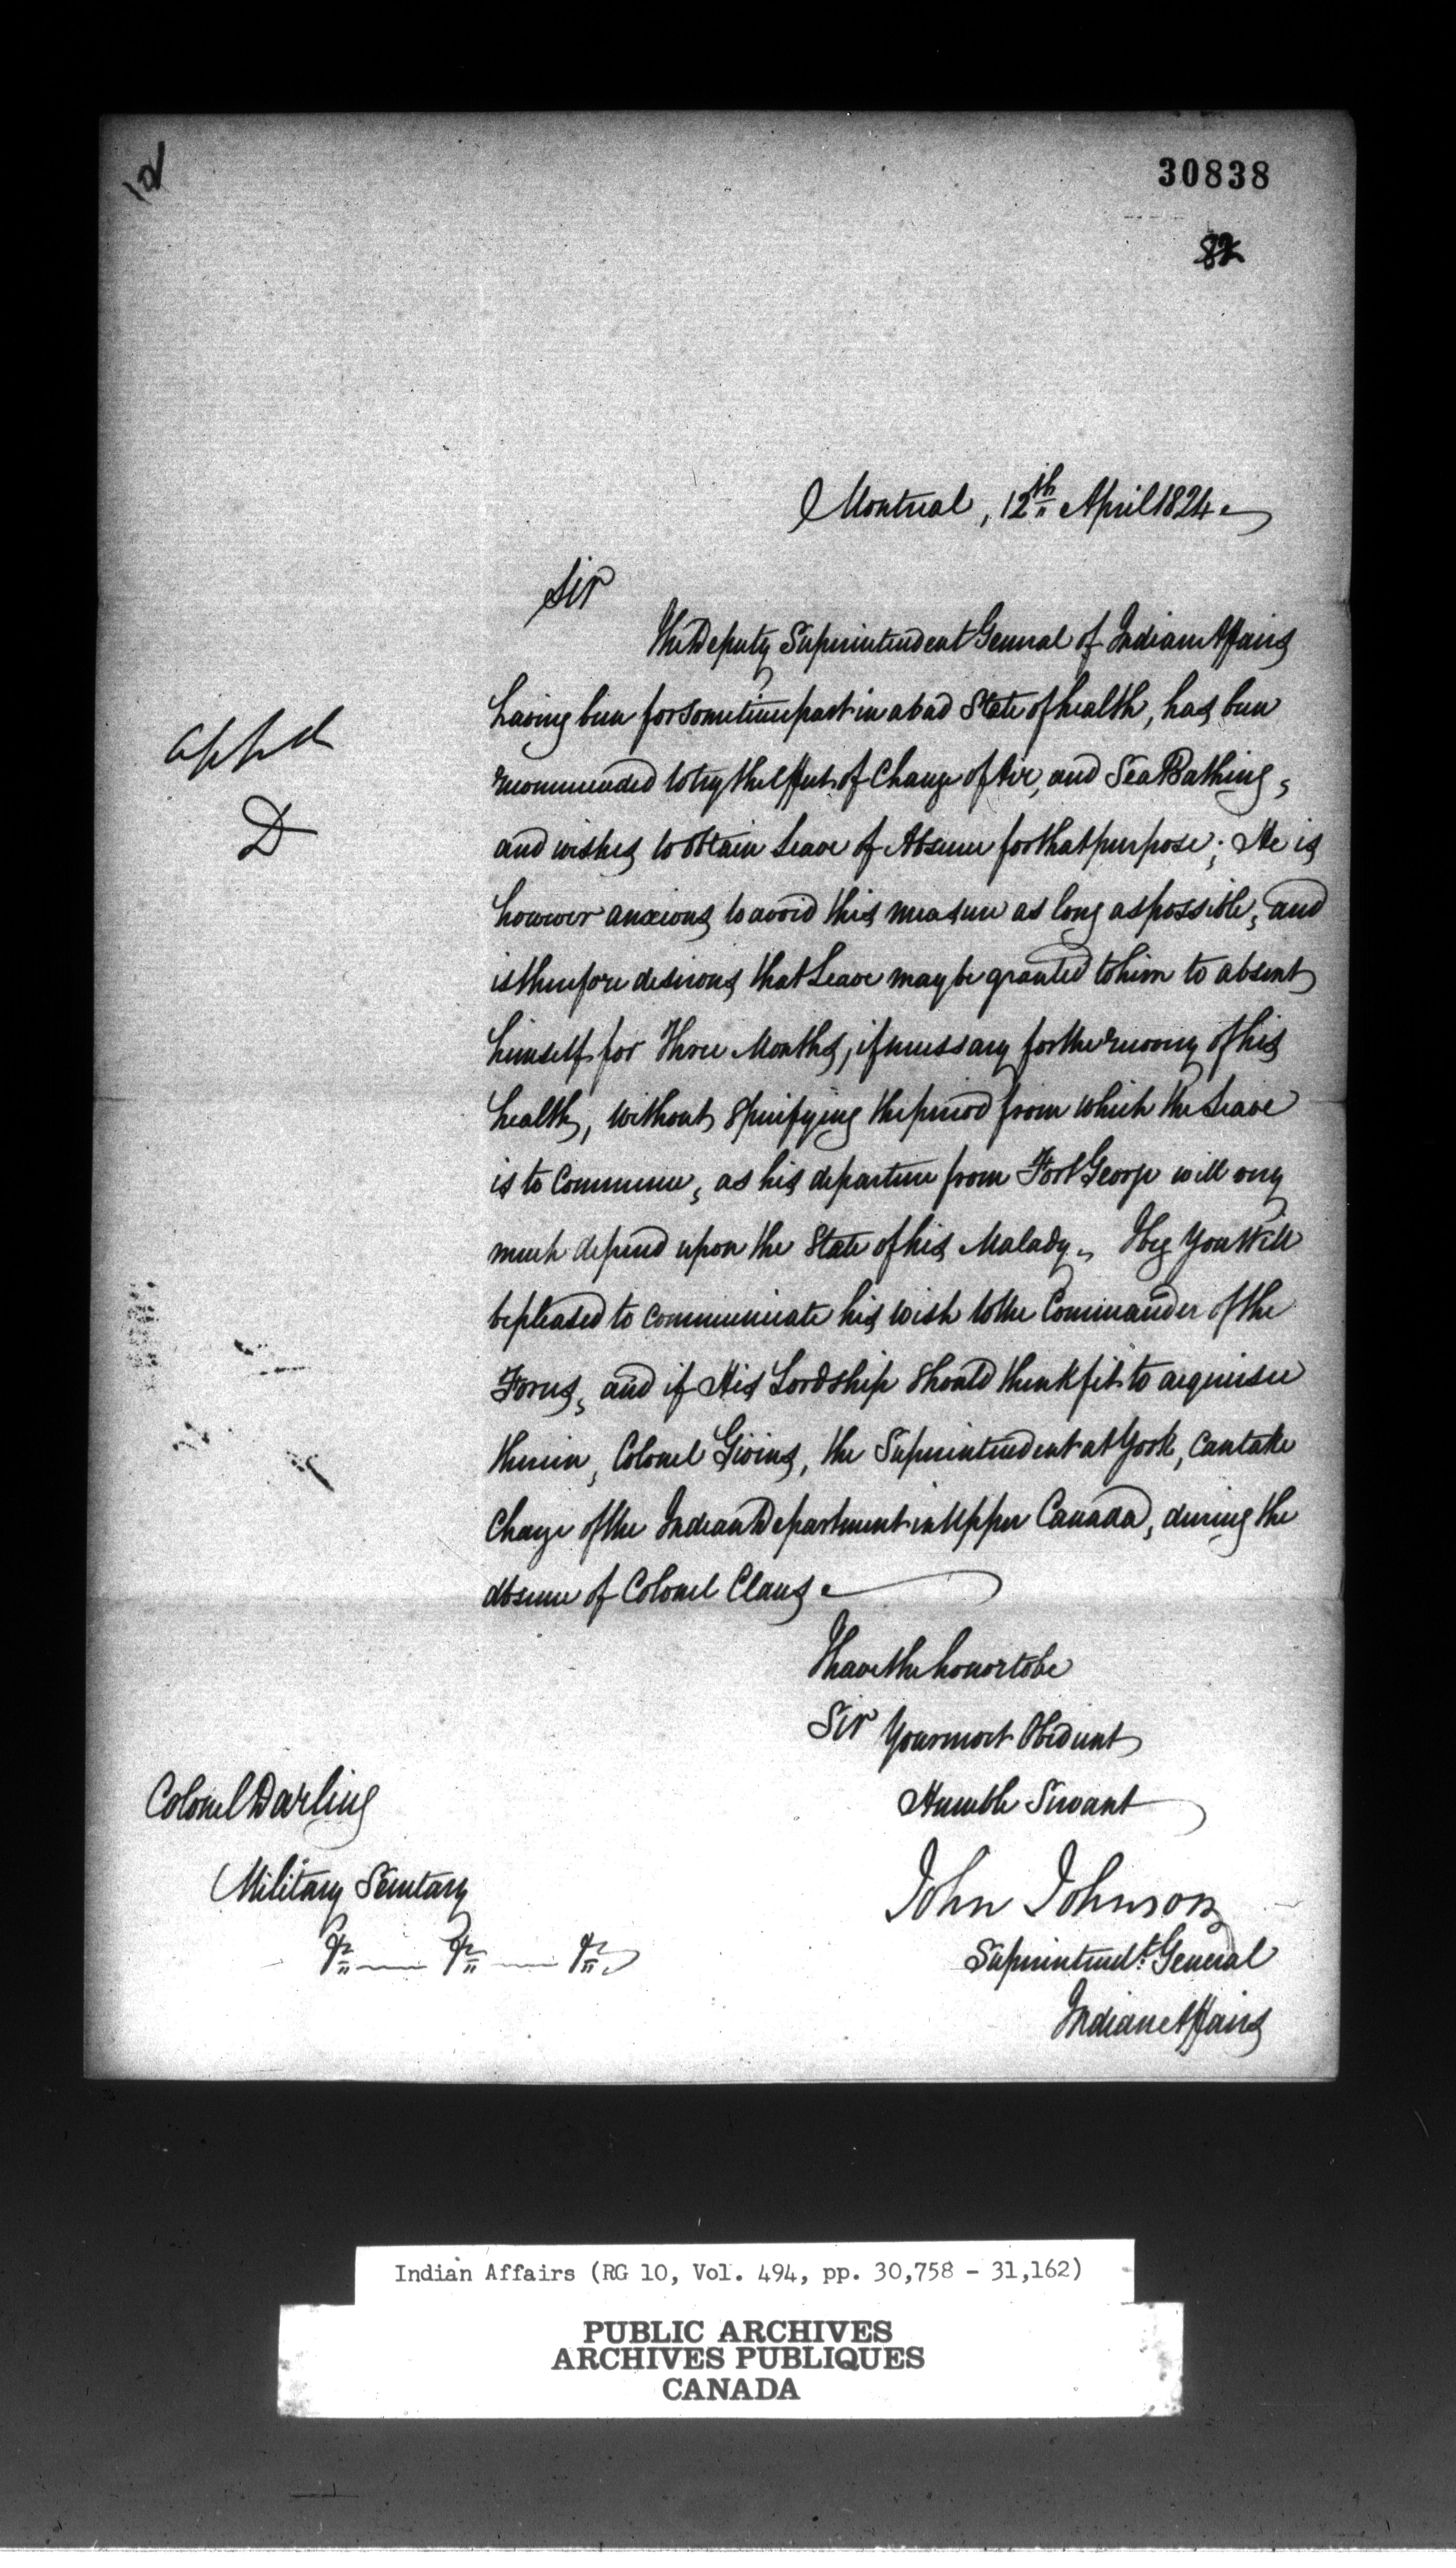 30838
82
Montreal, 12th April 1824.
Sir
The Deputy Superintendent General of Indian Affairs
having been for sometime past in a bad State of health, has been
recommended to try the effect of Change of Air, and Sea Bathing,
and wishes to obtain Leave of Absence for that purpose; He is
however anxious to avoid this measure as long as possible, and
is therefore desirous that Leave may be granted to him to absent
himself for Three Months, if necessary for the recovery of his
health, without specifying the period from which the Leave
is to Commence, as his departure from Fort George will very
much depend upon the State of his Malady. I beg You Will
be pleased to communicate his wish to the Commander of the
Forces, and if His Lordship should think fit to acquiesce
therein, Colonel Givins, the Superintendent at York, can take
Charge of the Indian Department in Upper Canada, during the
absence of Colonel Claus.
appd
D
I have the honor to be
Sir Your most Obedient
Humble Servant
John Johnson
Superintendt. General
Indian Affairs
Colonel Darling
Military Secretary
Indian Affairs (RG 10, Vol. 494, pp. 30,758 - 31,162)
PUBLIC ARCHIVES
ARCHIVES PUBLIQUES
CANADA